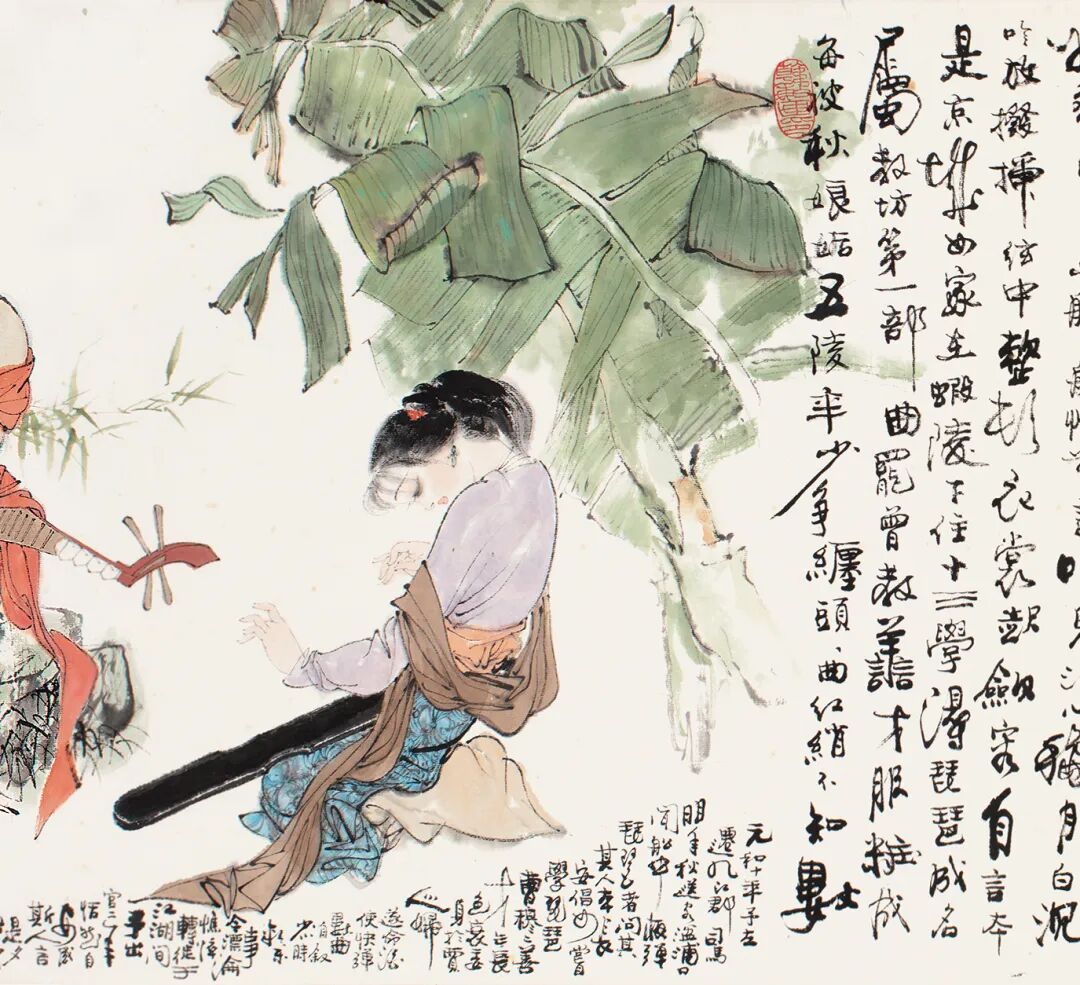 唯見江心秋月白沉
吟放撥插弦中整頓衣裳起斂容自言本
是京城女家在蝦陵下住十三學得琵琶成名
屬教坊第一部曲罷曾教善才服粧成
每被秋娘妬五陵年少爭纏頭一曲紅綃不知數
元和十年予左
遷九江郡司馬
明年秋送客湓浦口
聞船中夜彈
琵琶者問其
其人本長
安倡女嘗
學琵琶
曹穆二善
才年長
色衰委
身於賈
人婦
遂命酒
使快彈
數曲
自叙
少時
歡樂
事
今漂淪
憔悴
轉徙于
江湖間
予出
官二年
恬然自
安感
斯人言
是夕